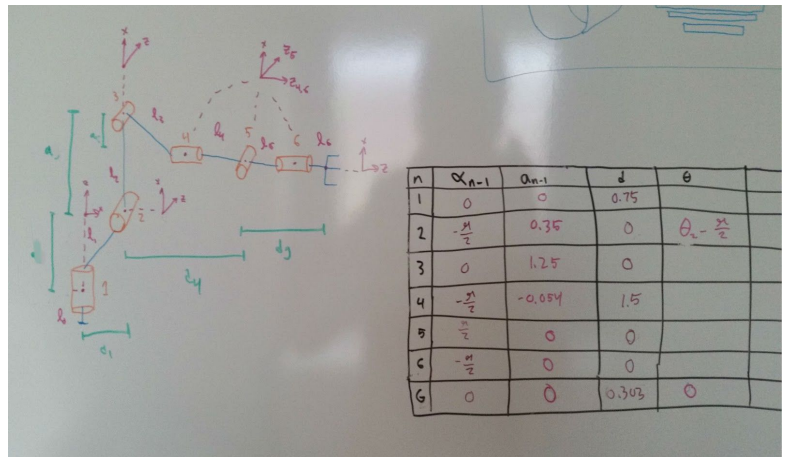 x
z
x
z5
z4,6
3
l3
4
l4
5
l5
6
l6
x
z
a2
l2
2
x
z
z
x
l1
1
l0
a1
d4
dg
n αn-1 an-1 d θ
1 0 0 0.75
2 -π/2 0.35 0 θ2 - π/2
3 0 1.25 0
4 -π/2 -0.054 1.5
5 π/2 0 0
6 -π/2 0 0
G 0 0 0.303 0